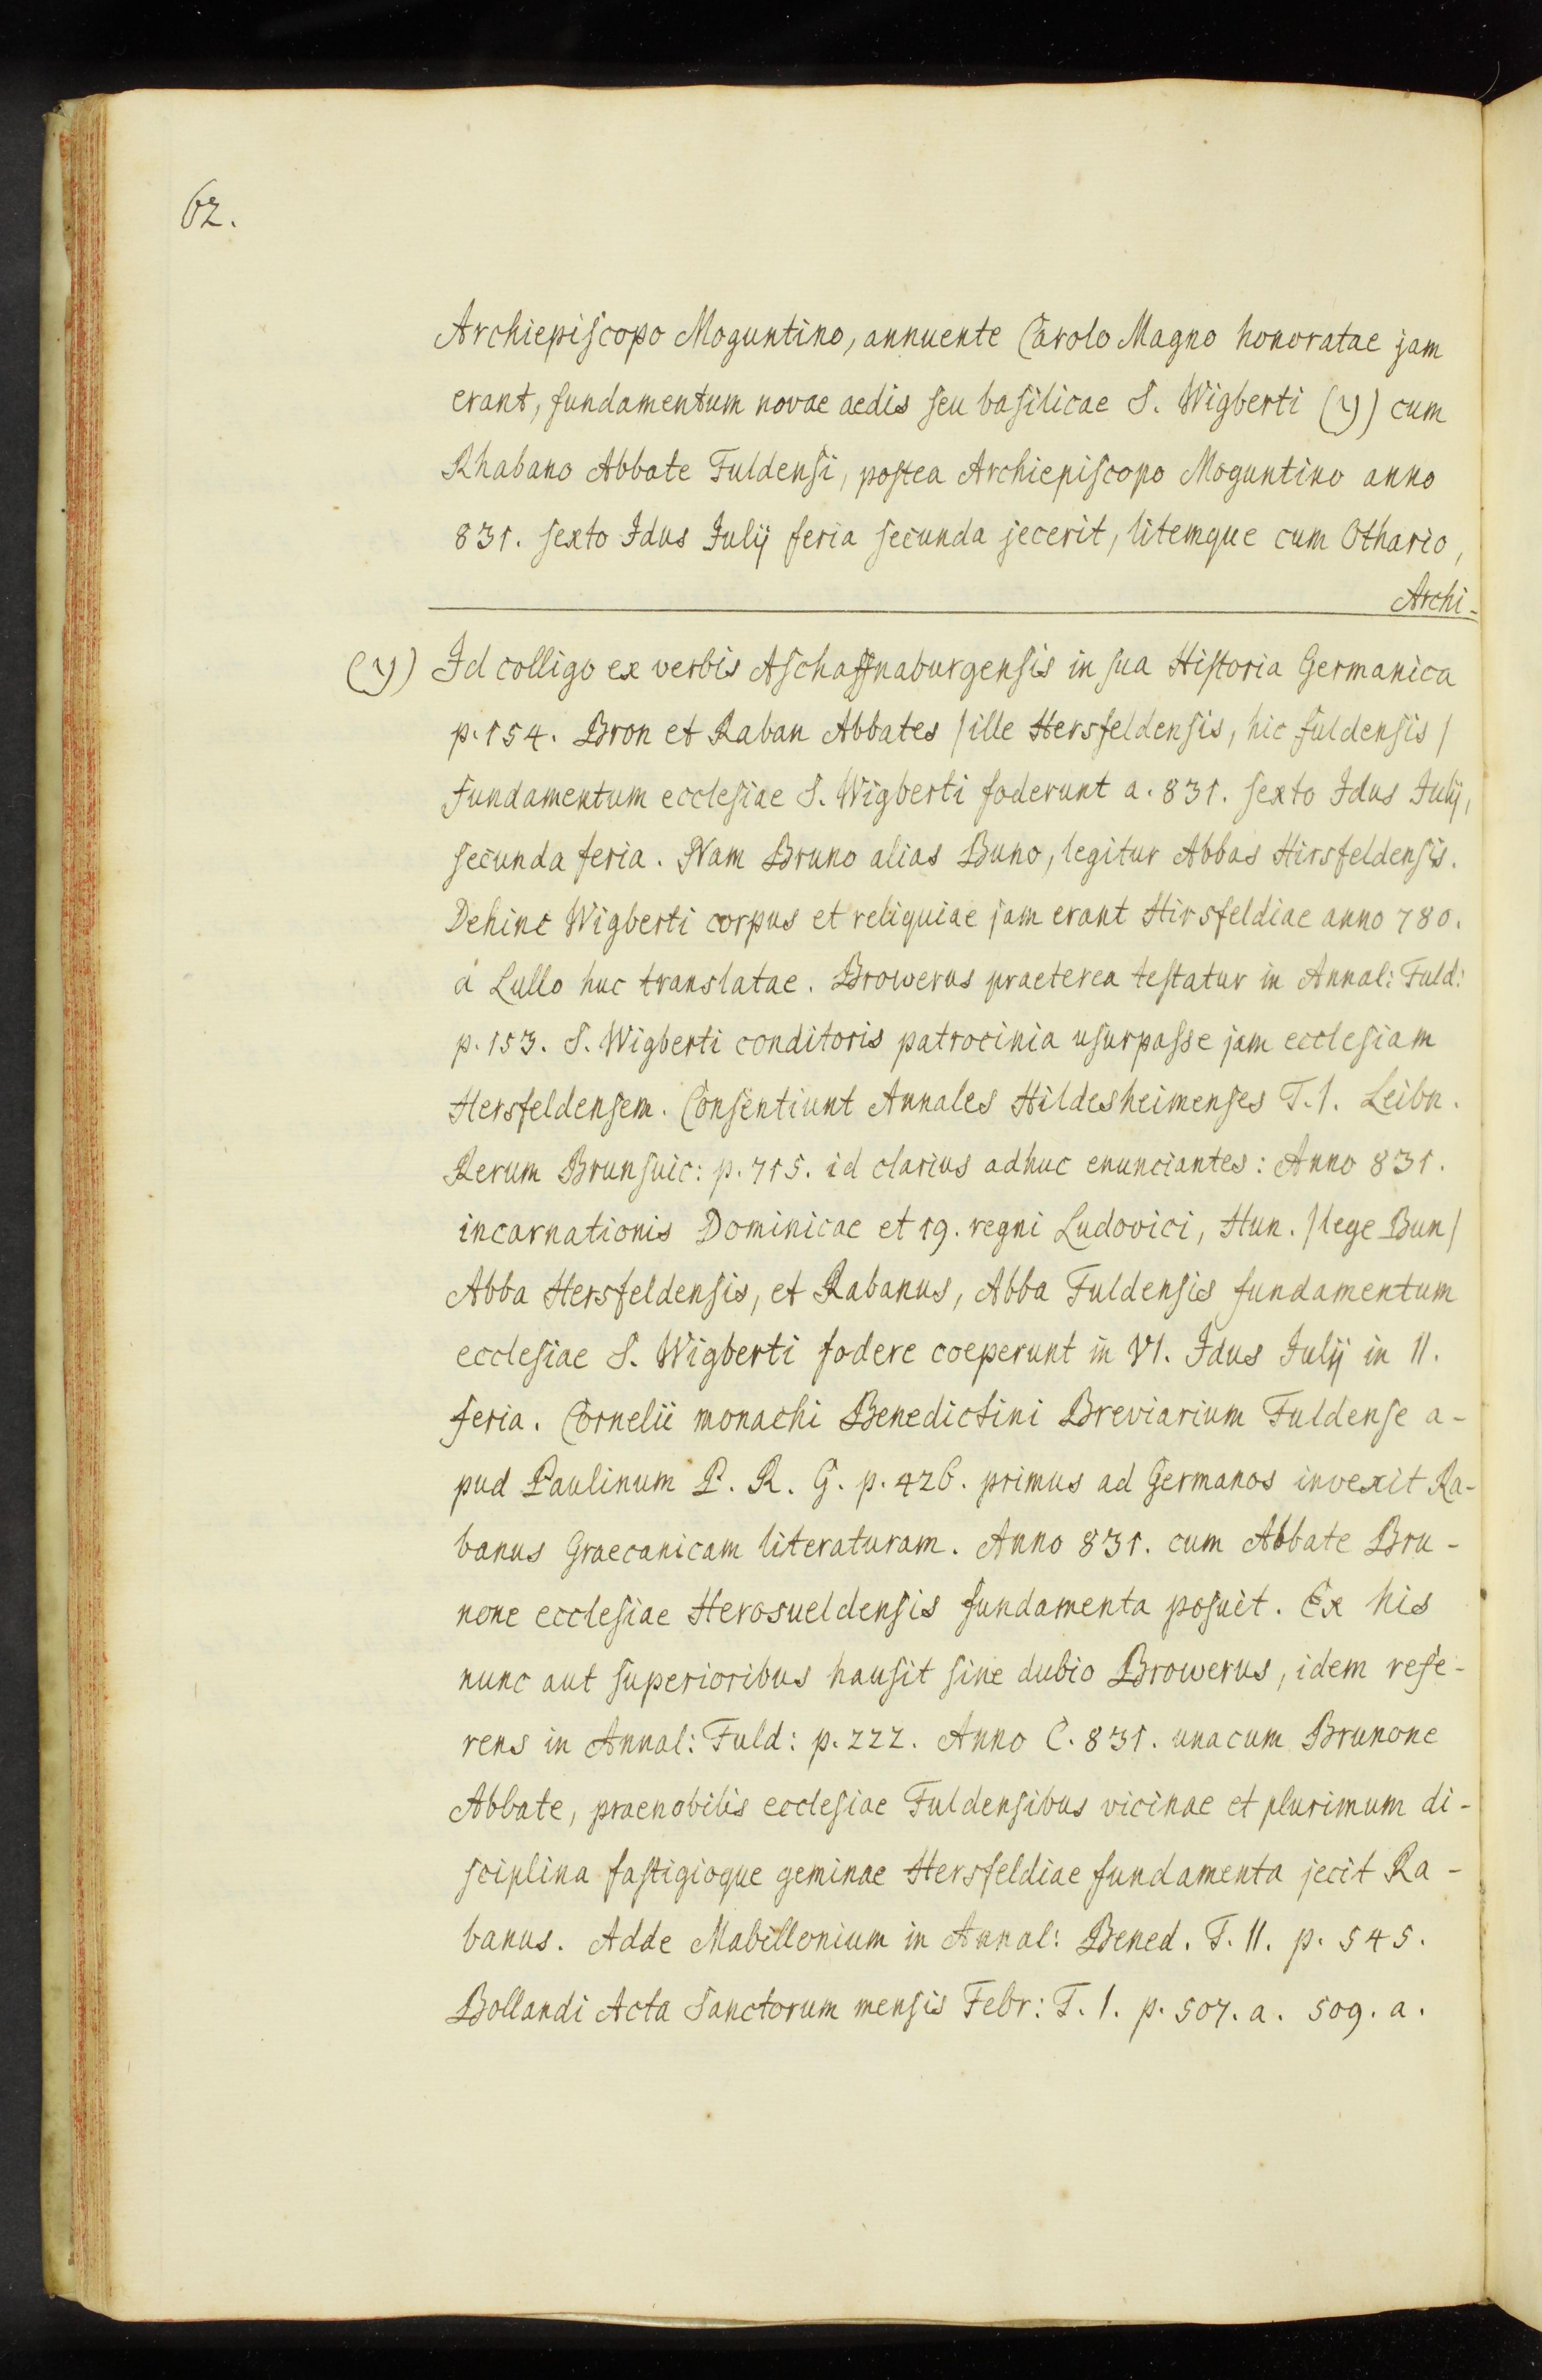 62.
Archiepiscopo Moguntino, annuente Carolo Magno honoratae jam
erant, fundamentum novae aedis seu basilicae S. Wigberti (y) cum
Rhabano Abbate Fuldensi, postea Archiepiscopo Moguntino anno
831. sexto Idus Julij feria secunda jecerit, litemque cum Othario,
Archi-
(y) Id colligo ex verbis Aschaffnaburgensis in sua Historia Germanica
p. 154. Bron et Raban Abbates /ille Hersfeldensis, hic fuldensis/
fundamentum ecclesiae S. Wigberti foderunt a. 831. sexto Idus Julij,
secunda feria. Nam Bruno alias Buno, legitur Abbas Hirsfeldensis.
Dehinc Wigberti corpus et reliquiae jam erant Hirsfeldiae anno 780.
á Lullo huc translatae. Browerus praeterea testatur in Annal: Fuld:
p. 153. S. Wigberti conditoris patrocinia usurpasse jam ecclesiam
Hersfeldensem. Consentiunt Annales Hildesheimenses T. I. Leibn.
Rerum Brunsuic: p. 715. id clarius adhuc enunciantes: Anno 831.
incarnationis Dominicae et 19. regni Ludovici, Hun. /lege Bun/
Abba Hersfeldensis, et Rabanus, Abba Fuldensis fundamentum
ecclesiae S. Wigberti fodere coeperunt in VI. Idus Julij in II.
feria. Cornelii monachi Benedictini Breviarium Fuldense a-
pud Paulinum P. R. G. p. 426. primus ad Germanos invexit Ra-
banus Graecanicam literaturam. Anno 831. cum Abbate Bru-
none ecclesiae Herosueldensis fundamenta posuit. Ex his
nunc aut superioribus hausit sine dubio Browerus, idem refe-
rens in Annal: Fuld: p. 222. Anno C. 831. unacum Brunone
Abbate, praenobilis ecclesiae Fuldensibus vicinae et plurimum di-
sciplina fastigioque geminae Hersfeldiae fundamenta jecit Ra-
banus. Adde Mabillonium in Annal: Bened. T. II. p. 545.
Bollandi Acta Sanctorum mensis Febr: T. I. p. 507. a. 509. a.